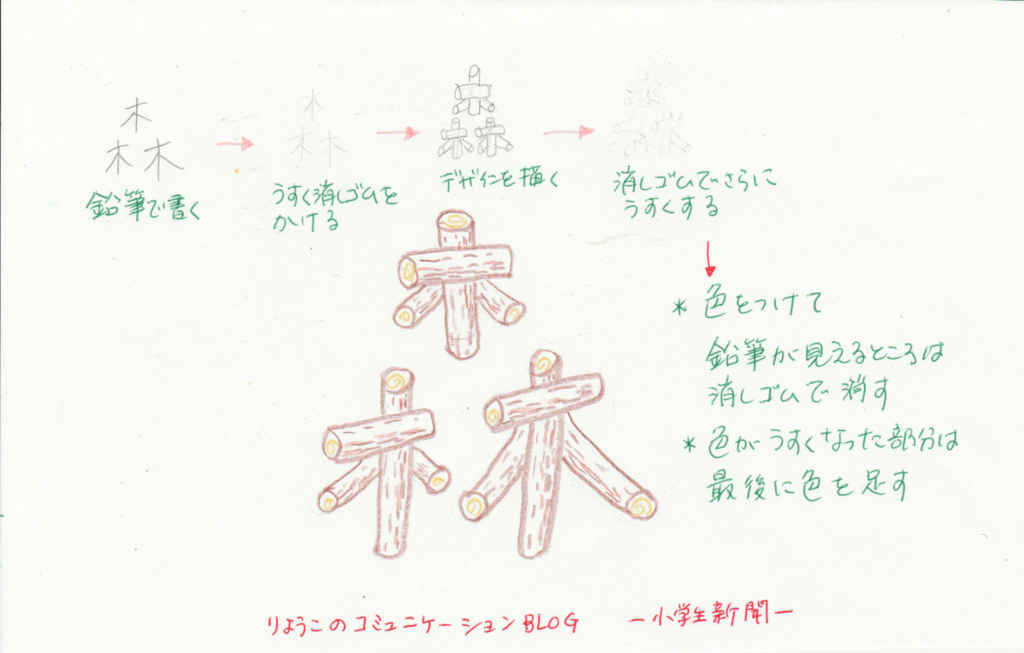 木
木木
鉛筆で書く
木
木木
うすく消しゴムを
かける
木
木木
デザインを描く
木
木木
消しゴムでさらに
うすくする
木
木木
* 色をつけて
鉛筆が見えるところは
消しゴムで消す
* 色がうすくなった部分は
最後に色を足す
りょうこのコミュニケーションBLOG ー小学生新聞ー